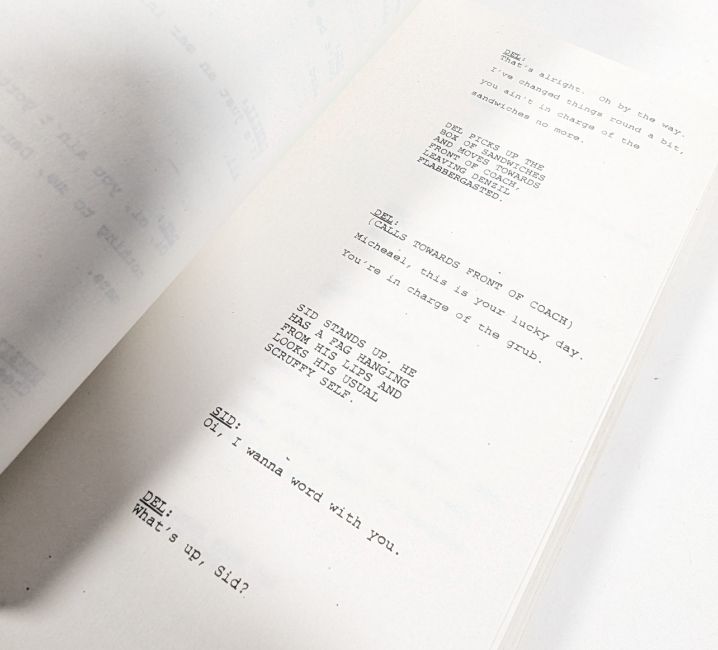 DEL:
That's alright. Oh by the way.
I've changed things round a bit,
you ain't in charge of the
sandwiches no more.
DEL PICKS UP THE
BOX OF SANDWICHES
AND MOVES TOWARDS
FRONT OF COACH,
LEAVING DENZIL
FLABBERGASTED.
DEL:
(CALLS TOWARDS FRONT OF COACH)
Micheael, this is your lucky day.
You're in charge of the grub.
SID STANDS UP. HE
HAS A FAG HANGING
FROM HIS LIPS AND
LOOKS HIS USUAL
SCRUFFY SELF.
SID:
Oi, I wanna word with you.
DEL:
What's up, Sid?